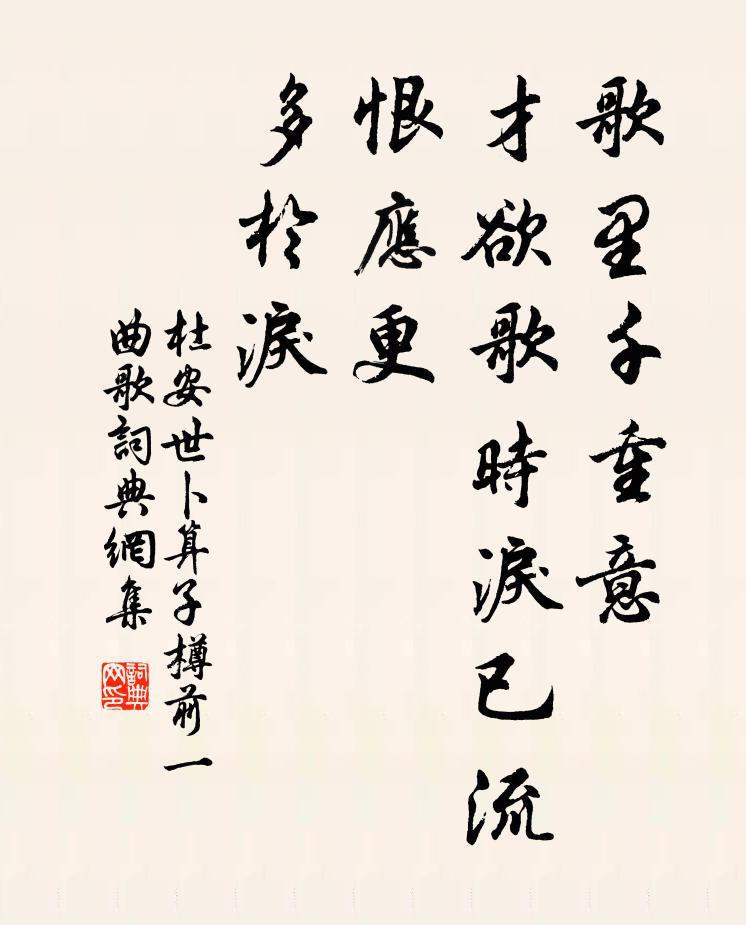 歌里千重意
才欲歌時淚已流
恨應更
多於淚
杜安世卜算子樽前一
曲歌詞典網集
詞典
网印